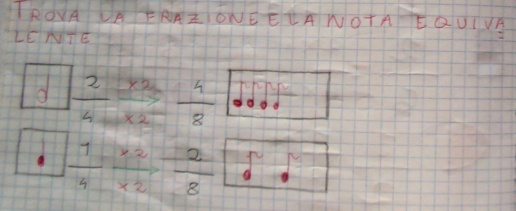 TROVA LA FRAZIONE E LA NOTA EQUIVA
LENTE
2 x2 4
4 x2 8
1 x2 2
4 x2 8